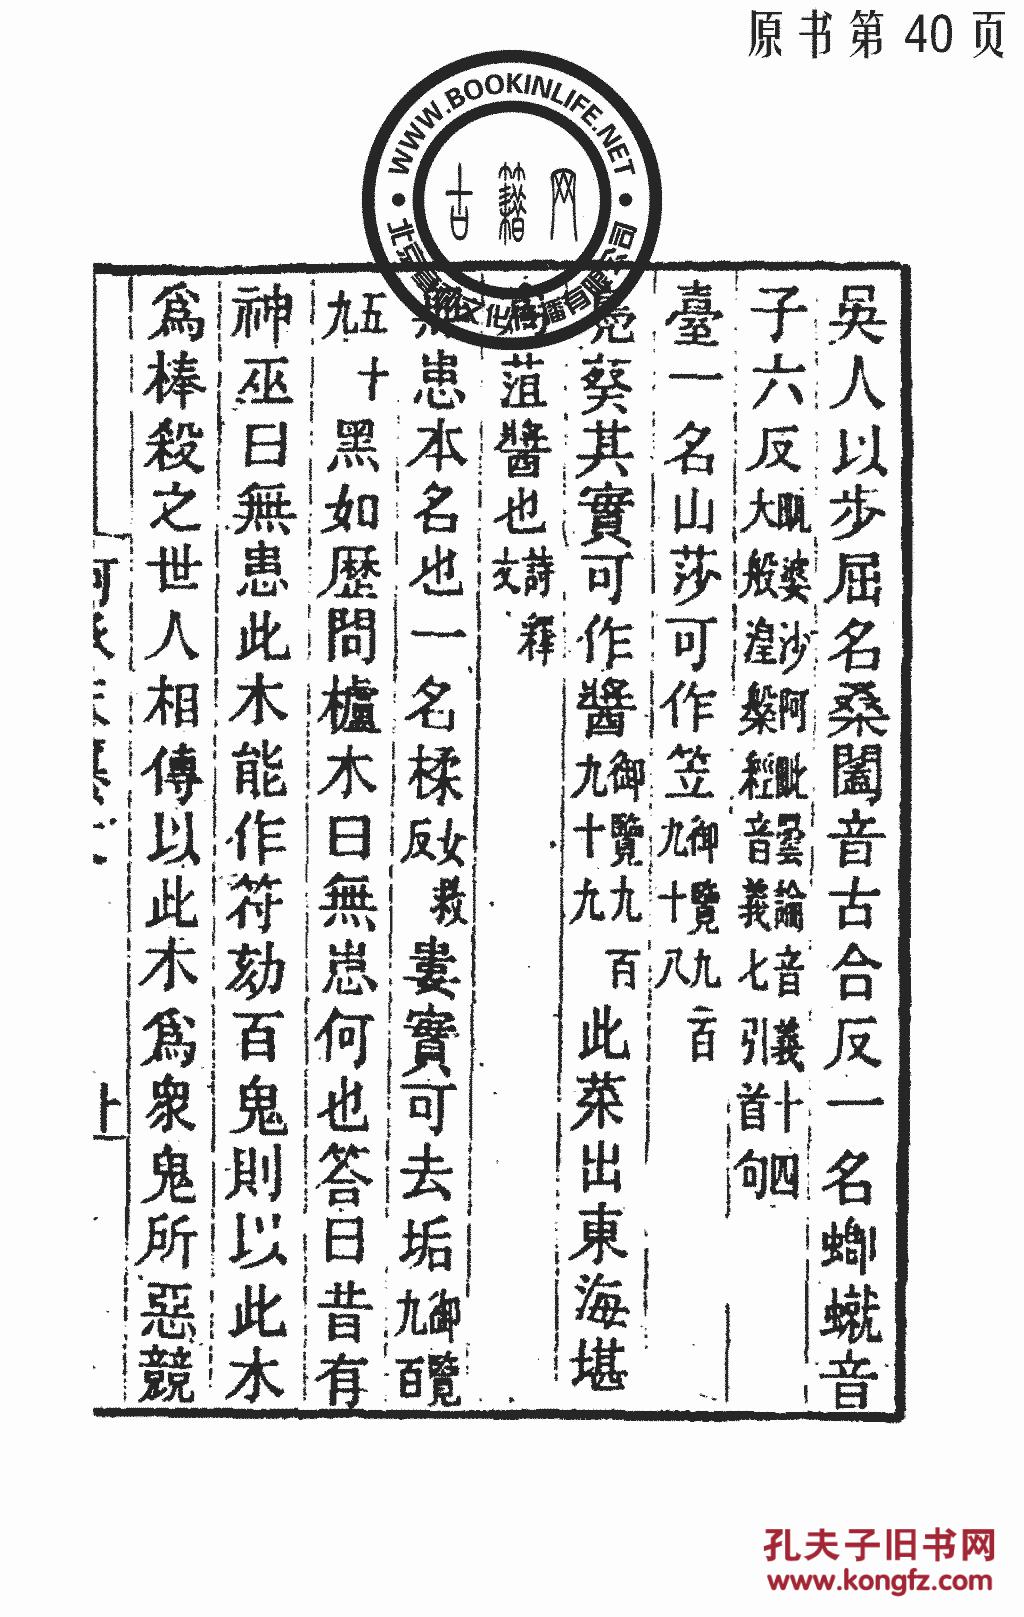 原书第 40 页
WWW.BOOKINLIFE.NET
古籍网
吳人以步屈名桑闔音古合反一名蝍䗥音
子六反大般涅槃經音義七引首句
臺一名山莎可作笠御覽九九十八百
葵其實可作醬御覽九九十九百此菜出東海堪
菹醬也詩釋文
無患本名也一名楺女救反婁實可去垢御覽九百
五十九黑如歷問櫨木曰無患何也答曰昔有
神巫曰無患此木能作符劾百鬼則以此木
爲棒殺之世人相傳以此木爲衆鬼所惡競
上
孔夫子旧书网
www.kongfz.com